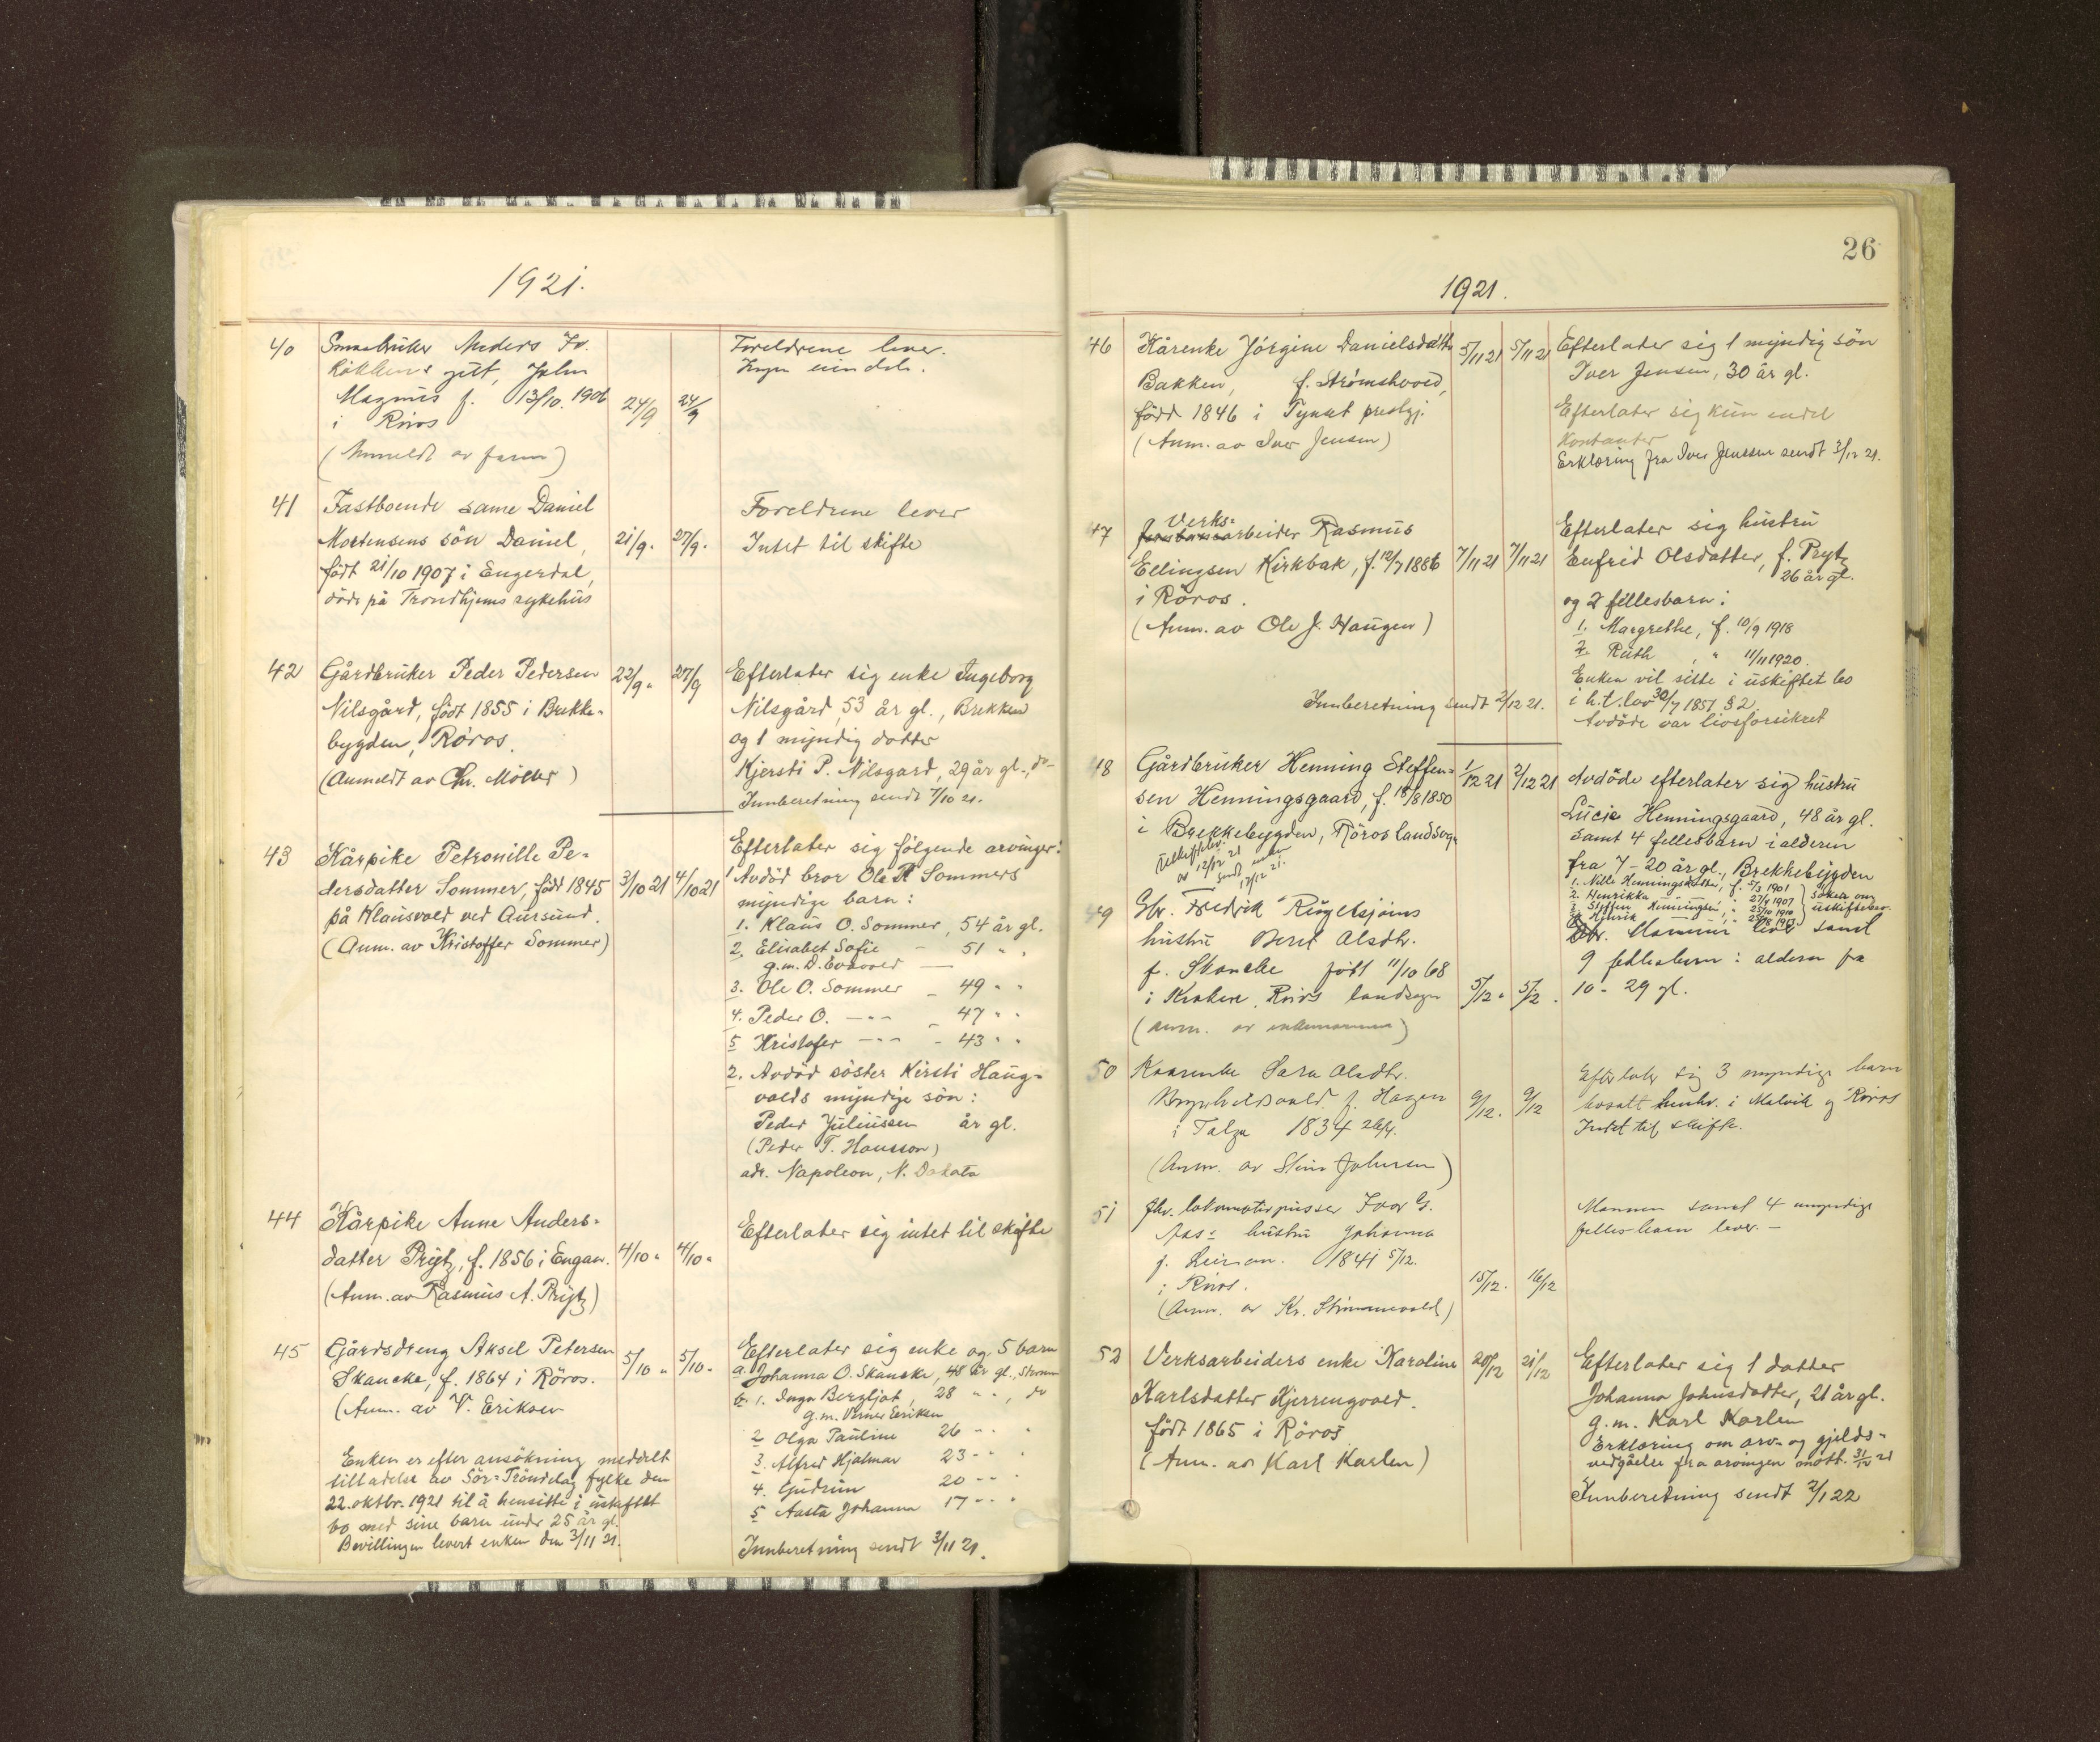 1921.
40 Smaabruker Anders Iv.
Kokkens gut, John
Magnus f. 13/10. 1906
i Röros 24/9 24/9
(Anmeldt av faren)
Foreldrene lever.
Ingen eiendele.
41 Fastboende same Daniel
Mortensens sön Daniel, 21/9. 27/9.
födt 21/10 1907 i Engerdal,
döde på Trondhjems sykehus
Foreldrene lever
Intet til skifte
42 Gårdbruker Peder Pedersen 22/9 „ 27/9
Nilsgård, födt 1855 i Brekke-
bygden, Röros.
(Anmeldt av Chr. Möller)
Efterlater sig enke Ingeborg
Nilsgård, 53 år gl., Brekken
og 1 myndig datter
Kjersti P. Nilsgard, 29 år gl., do-
Innberetning sendt 7/10 21.
43 Kårpike Petronille Pe-
dersdatter Sommer, födt 1845 3/10 21 4/10 21
på Klausvold ved Aursund.
(Anm. av Kristoffer Sommer)
Efterlater sig følgende arvinger:
1 Avdöd bror Ole P. Sommers
myndige barn:
1. Klaus O. Sommer, 54 år gl.
2. Elisabet Sofie — 51 „ „
g.m. D. Evavold —
3. Ole O. Sommer — 49 „ „
4. Peder O. —„— — 47 „ „
5 Kristofer —„— - 43 „ „
2. Avdöd söster Kirsti Haug-
volds myndige sön:
Peder Juliussen år gl.
(Peder T. Hansson)
adr. Napoleon, N. Dakota
44 Kårpike Anne Anders-
datter Prytz, f. 1856 i Engan. 4/10 „ 4/10 „
(Anm. av Rasmus A. Prytz)
Efterlater sig intet til skifte
45 Gårdsdreng Aksel Petersen
Skancke, f. 1864 i Röros. 5/10 „ 5/10 „
(Anm. av V. Eriksen
Enken er efter ansökning meddelt
tilladelse av Sör-Tröndelag fylke den
22. oktbr. 1921 til å hensitte i uskiftet
bo med sine barn under 25 år gl.
Bevillingen levert enken den 3/11 21.
Efterlater sig enke og 5 barn
a. Johanna O. Skancke, 48 år gl.,
b. 1. Inga Bergljot, 28 „ „, do
g.m. Verner Eriksen
2 Olga Pauline 26 „ „ „
3. Alfred Hjalmar 23 „ „
4. Gudrun 20 „ „ „
5 Aasta Johanna 17 „ „ „
Innberetning sendt 3/11 21.
26
1921.
46 Kårenke Jörgine Danielsdatter 5/11 21 5/11 21
Bakken, f. Strømshoved,
född 1846 i Tynset prestgj.
(Anm. av Iver Jensen)
Efterlater sig 1 myndig sön
Iver Jensen, 30 år gl.
Efterlater sig kun endel
kontanter
Erklæring fra Iver Jenssen sendt 3/12 21.
47 Verks-
arbeider Rasmus
Ellingsen Kirkbak, f. 12/7 1886 7/11 21 7/11 21
i Röros.
(Anm. av Ole J. Haugen)
Innberetning sendt 2/12 21.
Efterlater sig hustru
Enfrid Olsdatter, f. Prytz
26 år gl.
og 2 fellesbarn:
1. Margrethe, f. 10/9 1918
2. Ruth, „ 11/11 1920.
Enken vil sitte i uskiftet bo
i h.t. lov 30/7 1851 § 2.
Avdöde var livsforsikret
48 Gårdbruker Henning Steffen- 1/12 21 2/12 21
sen Henningsgaard, f. 18/8 1850
i Brekkebygden, Röros landsogn
av 12/12 21
sendt enken
17/12 21.
Avdöde efterlater sig hustru
Lucie Henningsgaard, 48 år gl.
samt 4 fellesbarn i alderen
fra 7 - 20 år gl., Brekkebygden
1. Nille Henningsdatter, f. 5/3 1901
2. Henrikke — „ — „ 27/4 1907
3. Steffen Henningsen, „ 25/10 1910
4. Henrik — „ — „ 25/8 1913
søker om
uskiftebev.
49 Gbr. Fredrik Rugelsjöens
hustru Beret Olsdtr.
f. Skancke födt 11/10 68
i Kroken, Röros landsogn 5/12 „ 5/12.
(Anm. av enkemannen)
Mannen lever samt
9 fellesbarn: alderen fra
10 - 29 gl.
50 Kaarenke Sara Olsdtr.
f. Hagen 9/12. 9/12
i Tolga 1834 26/4.
(Anm. av Stina Johnsen)
Efterlater sig 3 myndige barn
bosatt henhv. i Malvik og Röros
Intet til skifte.
51 fhv. lokomotivpusser Ivar G.
Aas's hustru Johanna
f. 1841 5/12.
i Röros. 15/12. 16/12
(Anm. av Kr. Strömmevold)
Mannen samt 4 myndige
felles-barn lever. —
52 Verksarbeiders enke Karoline 20/12 21/12
Karlsdatter Kjerrengvold.
født 1865 i Röros
(Anm. av Karl Karlsen)
Efterlater sig 1 datter
Johanna Johnsdatter, 21 år gl.
g.m. Karl Karlsen
Erklæring om arv- og gjelds-
vedgåelse fra arvingen mott. 31/12 21
Innberetning sendt 2/1 22